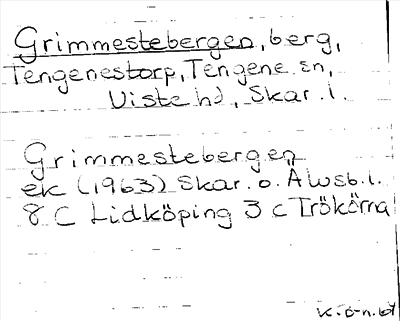 Grimmestebergen, berg,
Tengenestorp, Tengene sn,
Viste hd, Skar. l.
Grimmestebergen
ek (1963) Skar. o. Älvsb. l.
8 C Lidköping 3 c Trökörna
K. Ö-n. 67